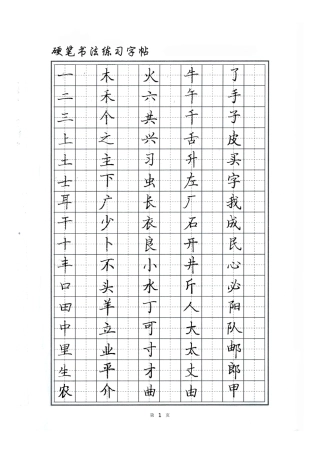 硬笔书法练习字帖
一二三上土士耳干十丰口田中里生农
木禾个之主下广少卜不头羊立业平介
火六共兴习虫长衣良小水丁可寸才曲
牛午千舌升左厂石开井斤人大太丈由
了手子皮买字我成民心必阳队邮郎甲
第 1 页